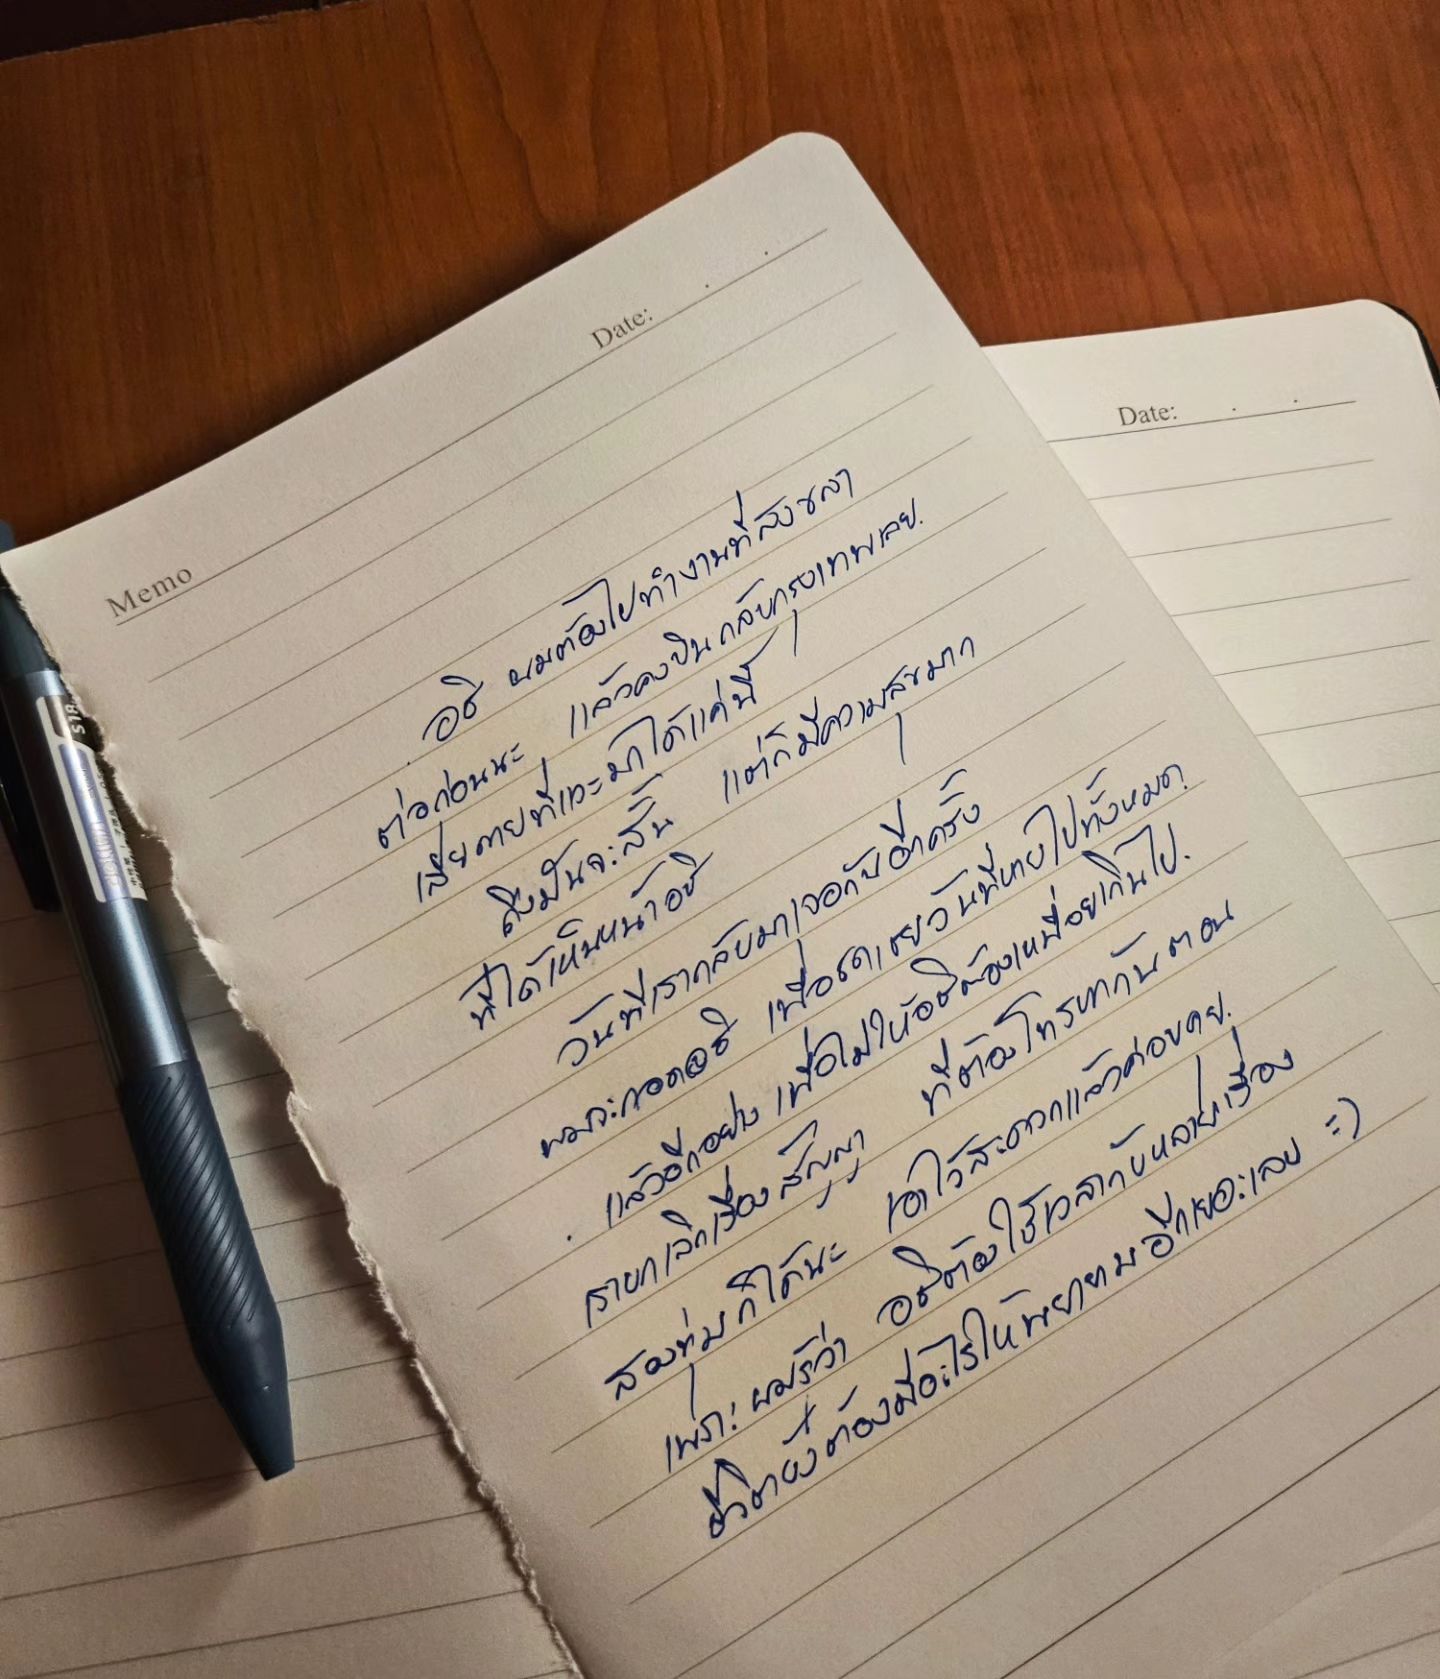 Memo
Date:
Date:
อชิ ผมต้องไปทำงานที่สงขลา
ต่อก่อนนะ แล้วคงบินกลับกรุงเทพเลย.
เสียดายที่แวะมาได้แค่นี้
ถึงมันจะสั้น แต่ก็มีความสุขมาก
ที่ได้เห็นหน้าอชิ
วันที่เรากลับมาเจอกันอีกครั้ง
ผมจะกอดอชิ เพื่อชดเชยวันที่หายไปทั้งหมด
แล้วอีกอย่าง เพื่อไม่ให้อชิต้องเหนื่อยเกินไป.
เรายกเลิกเรื่องสัญญา ที่ต้องโทรหากันตอน
สองทุ่มก็ได้นะ เอาไว้สะดวกแล้วค่อยคุย.
เพราะผมรู้ว่า อชิต้องใช้เวลากับหลายเรื่อง
ชีวิตยังต้องมีอะไรให้พยายามอีกเยอะเลย =)